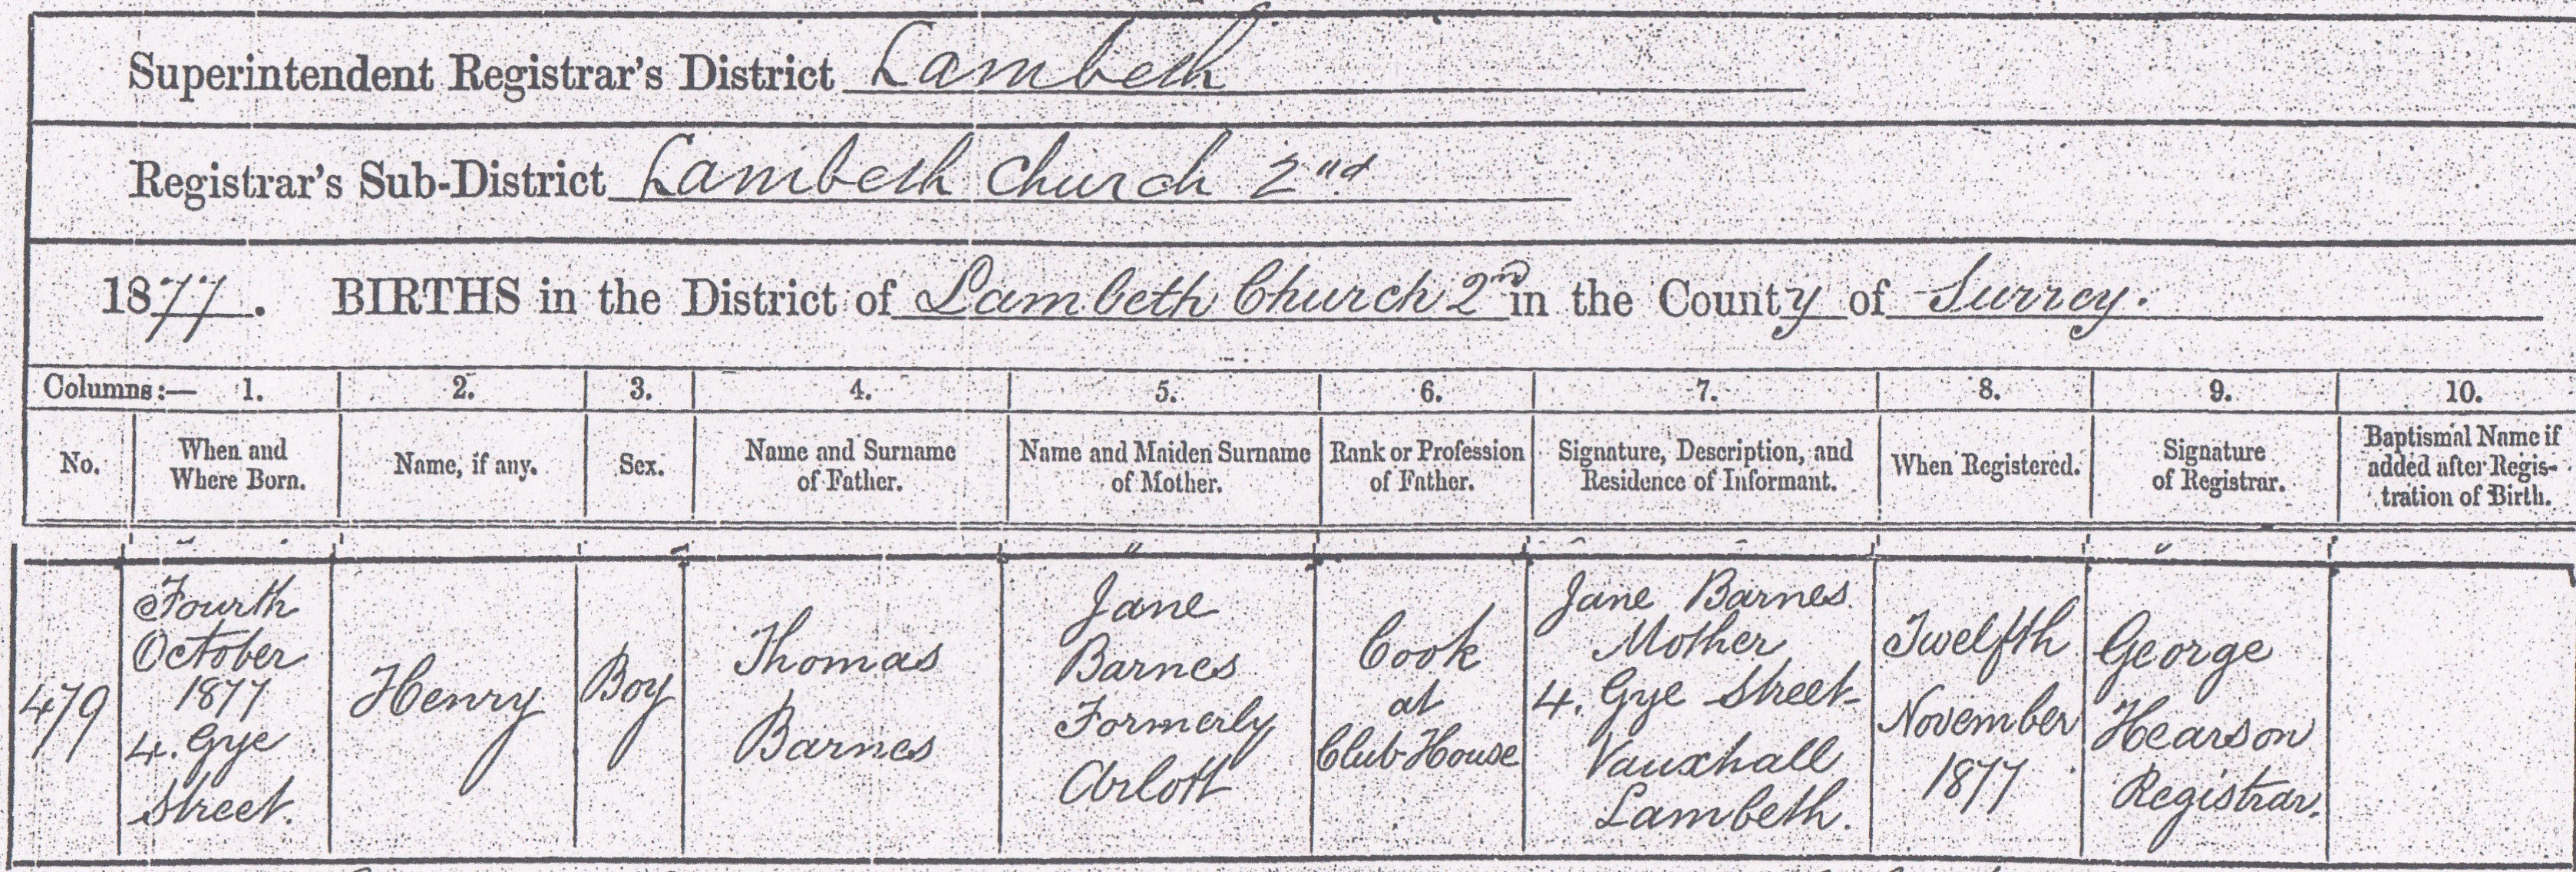 Superintendent Registrar's District Lambeth
Registrar's Sub-District Lambeth Church 2nd
1877. BIRTHS in the District of Lambeth Church 2nd in the County of Surrey.
Columns:— 1. 2. 3. 4. 5. 6. 7. 8. 9. 10.
No.
When and
Where Born.
Name, if any.
Sex.
Name and Surname
of Father.
Name and Maiden Surname
of Mother.
Rank or Profession
of Father.
Signature, Description, and
Residence of Informant.
When Registered.
Signature
of Registrar.
Baptismal Name if
added after Regis-
tration of Birth.
479
Fourth
October
1877
4. Gye
Street.
Henry
Boy
Thomas
Barnes
Jane
Barnes
Formerly
Arlott
Cook
at
Club House
Jane Barnes
Mother
4. Gye Street
Vauxhall
Lambeth.
Twelfth
November
1877
George
Hearson
Registrar.